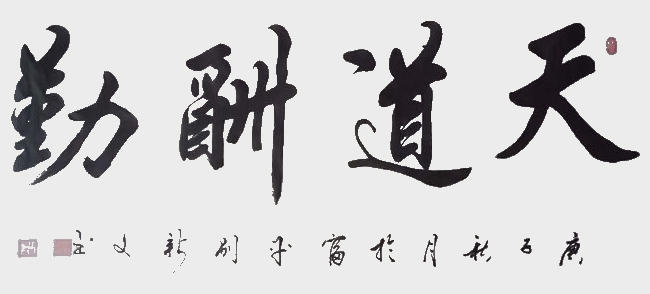 天道酬勤
庚子秋月於富平刘新文书